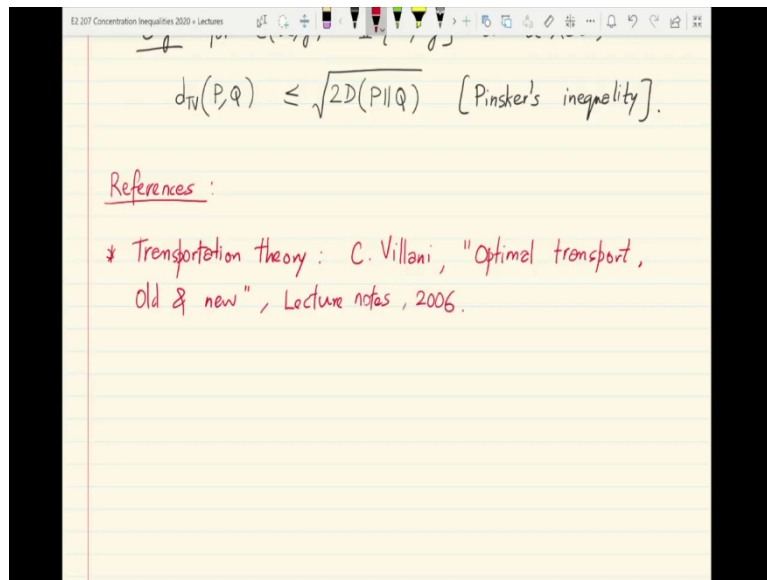 E2 207 Concentration Inequalities 2020 » Lectures
d_TV(P,Q) ≤ √2D(P||Q) [Pinsker's inequality].
References :
* Transportation theory : C. Villani, "Optimal transport,
Old & new", Lecture notes, 2006.